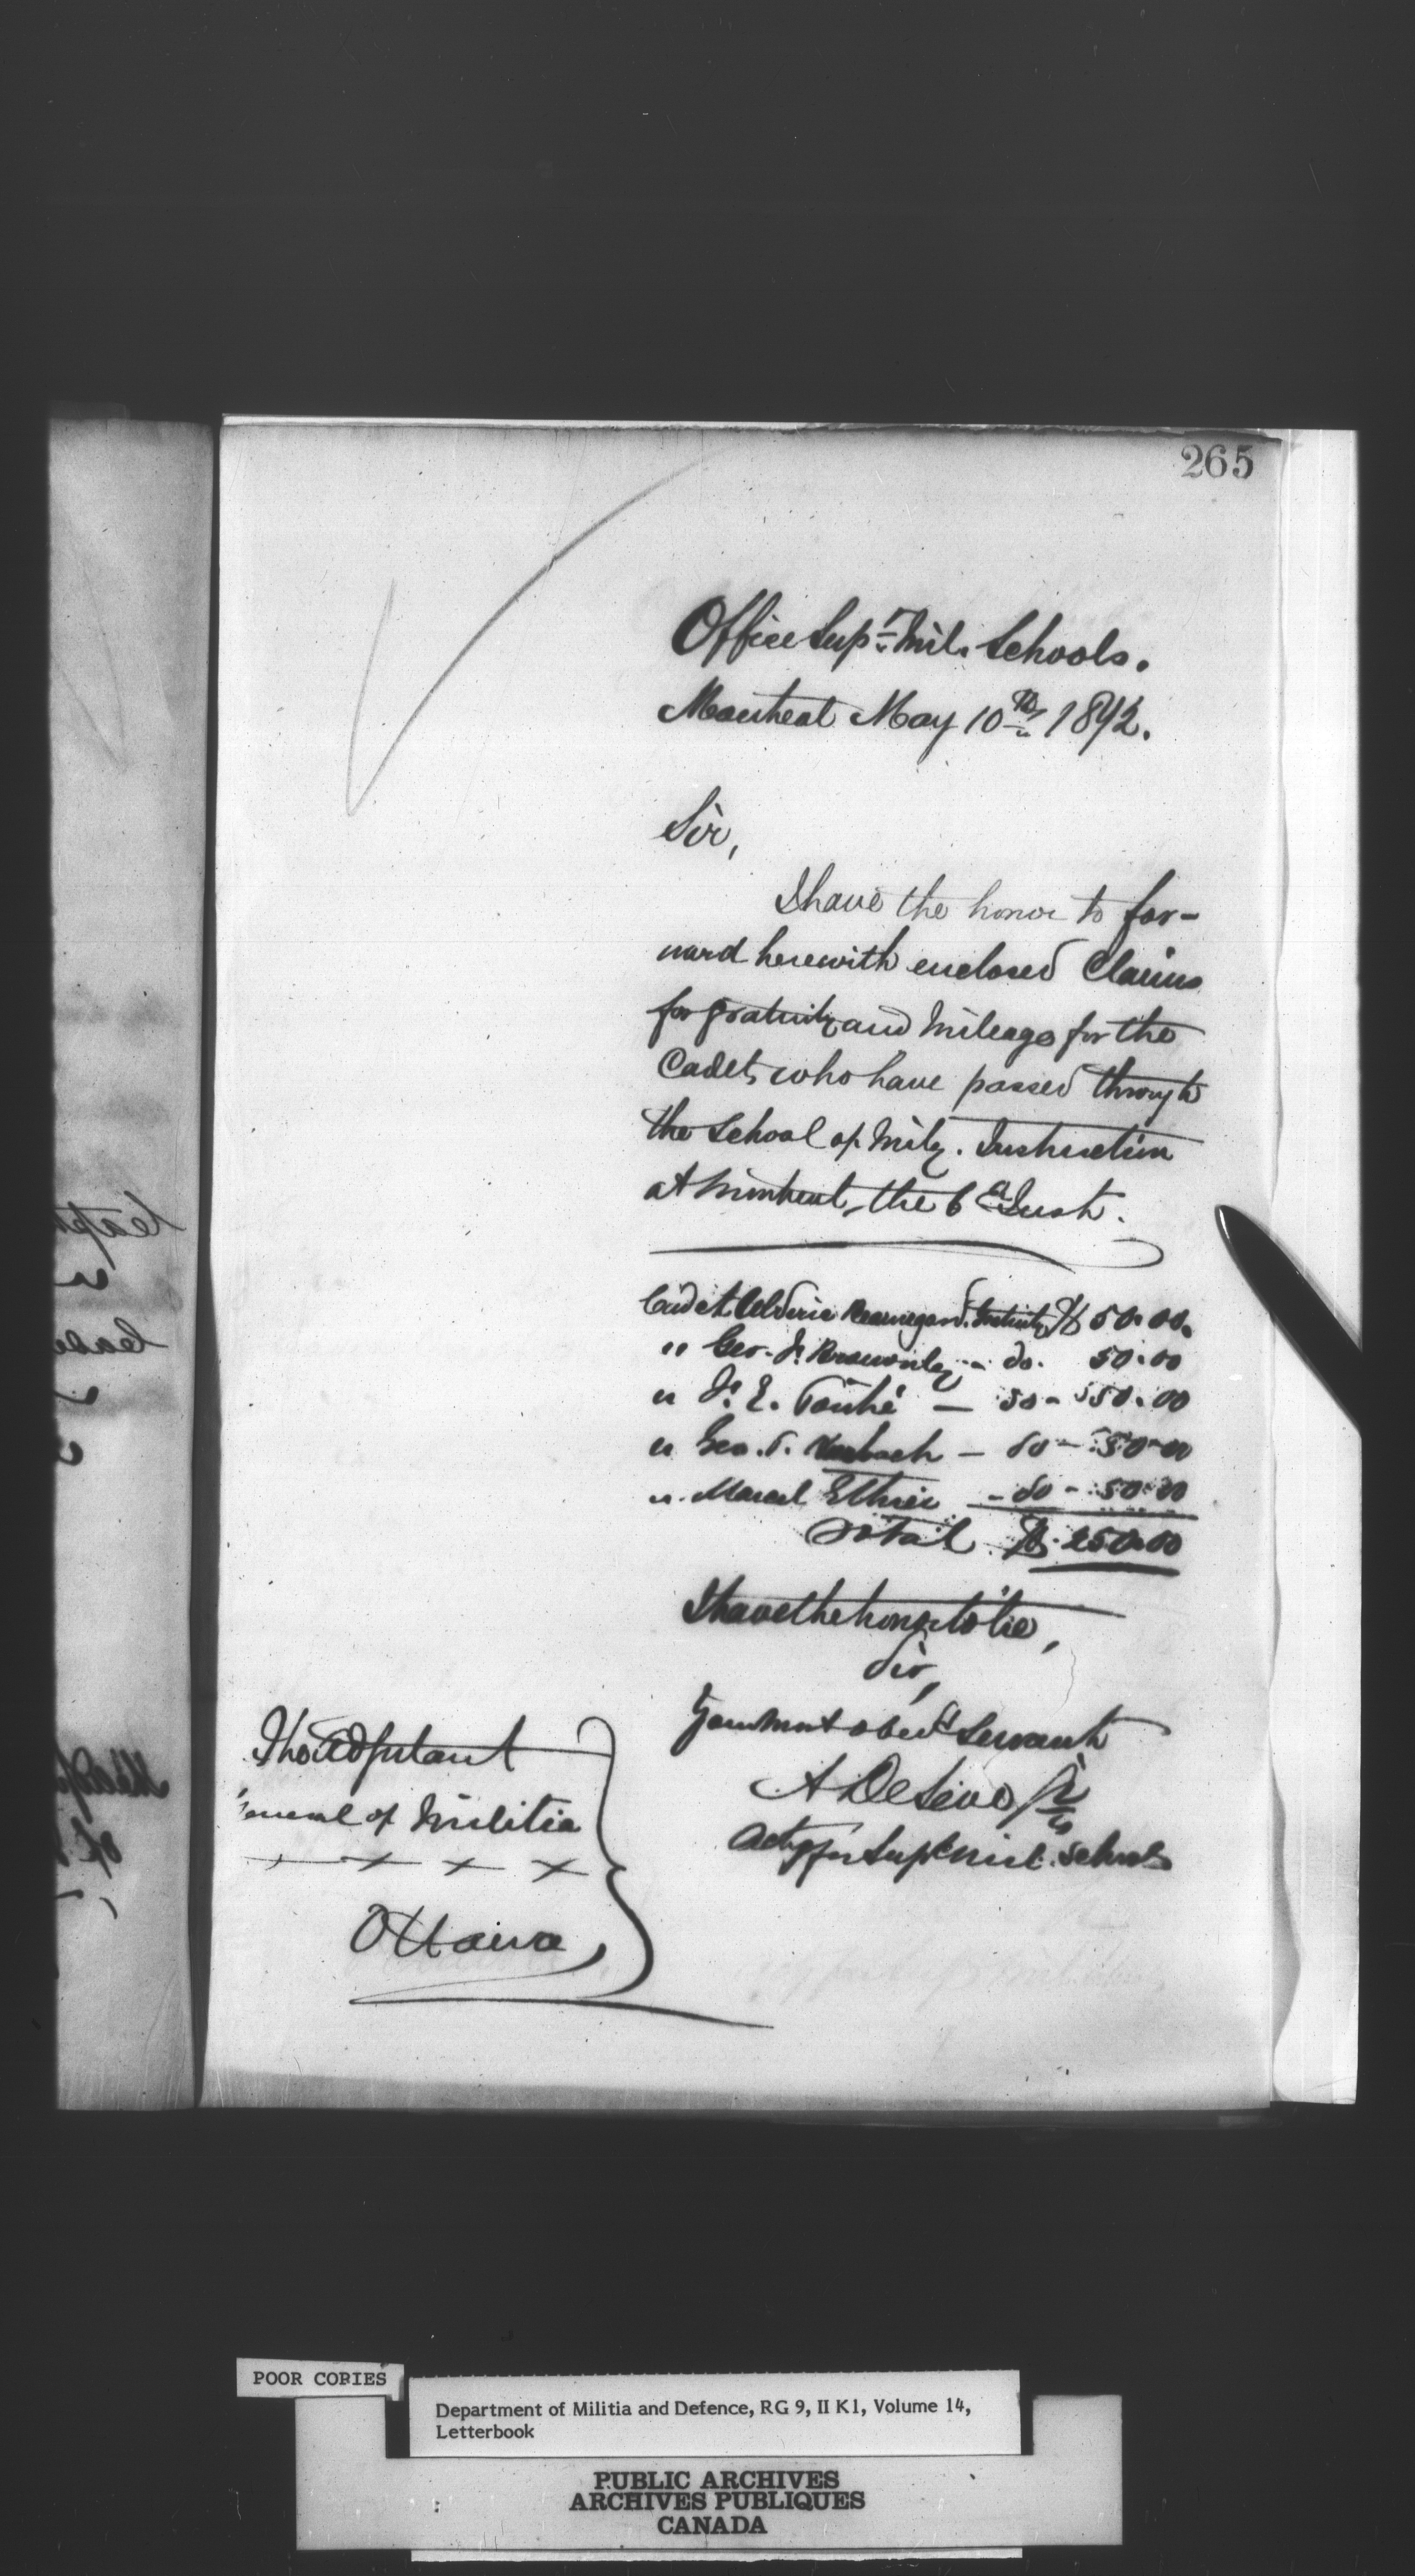 265
Office Supt. Mil. Schools.
Montreal May 10th 1872.
Sir,
I have the honor to for-
ward herewith enclosed Claims
for gratuity and Mileage for the
Cadets who have passed through
the School of Mily. Instruction
at Montreal, the 6th Inst.
Cadet Beauregard. Gratuity $ 50.00.
" Geo. J. Brownley - do. 50.00
" J. E. - do - 50.00
" Geo. - do - 50.00
" Marcel Ethier - do - 50.00
Total $ 250.00
I have the honor to be,
Sir,
Your most obedt Servant
A DeLeve Jr
Actg for Supt Mil. Schools
The Adjutant
General of Militia
x x x
Ottawa,
POOR COPIES
Department of Militia and Defence, RG 9, II K1, Volume 14,
Letterbook
PUBLIC ARCHIVES
ARCHIVES PUBLIQUES
CANADA